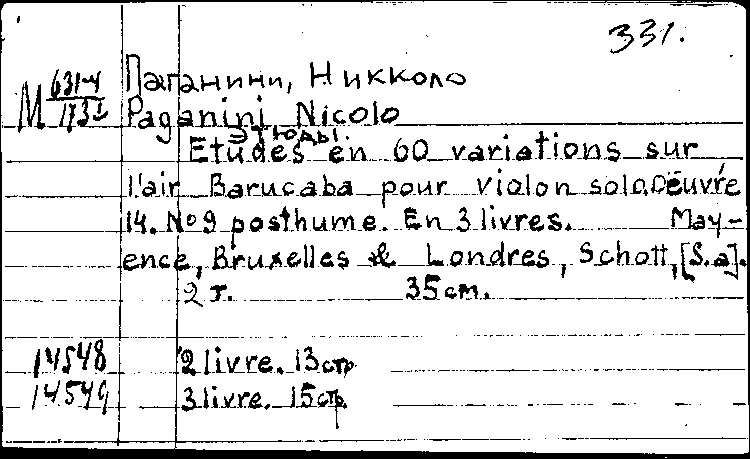 331.
Паганини, Никколо
М 631-4
Paganini Nicolo
Этюды.
Etudes en 60 variations sur
l'air Barucaba pour violon solo. Oeuvre
14. No 9 posthume. En 3 livres. May-
ence, Bruxelles & Londres, Schott, [S.a].
2 т. 35 см.
14548 2 livre. 13 стр
14549 3 livre. 15 стр.